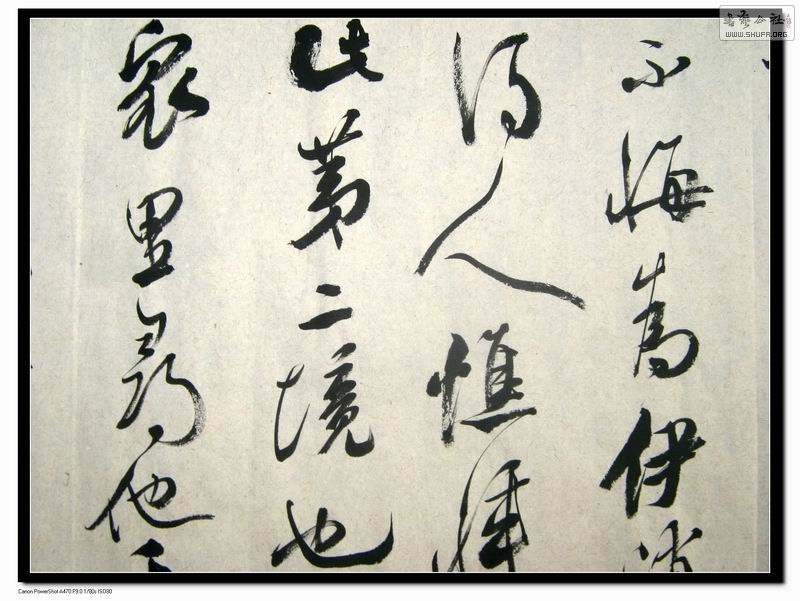 書藝公社
WWW.SHUFA.ORG
不悔為伊消
得人憔悴
此第二境也
衆里尋他千
Canon PowerShot A470 F9.0 1/80s ISO80